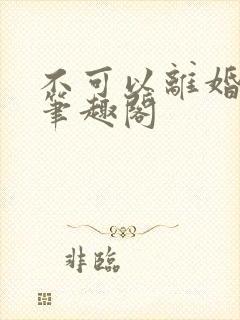 不可以離婚
筆趣閣
非臨